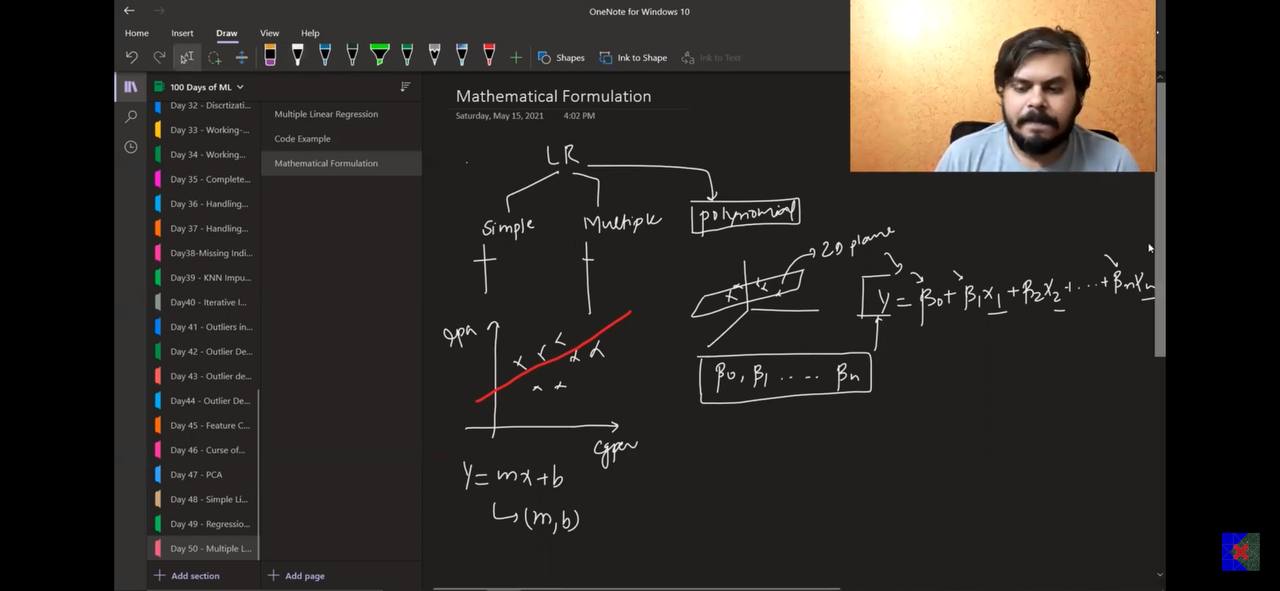 OneNote for Windows 10
Home Insert Draw View Help
Shapes Ink to Shape Ink to Text
100 Days of ML
Day 32 - Discrtizati...
Day 33 - Working-...
Day 34 - Working...
Day 35 - Complete...
Day 36 - Handling...
Day 37 - Handling...
Day38-Missing Indi...
Day39 - KNN Impu...
Day40 - Iterative I...
Day 41 - Outliers in...
Day 42 - Outlier De...
Day 43 - Outlier de...
Day44 - Outlier De...
Day 45 - Feature C...
Day 46 - Curse of...
Day 47 - PCA
Day 48 - Simple Li...
Day 49 - Regressio...
Day 50 - Multiple L...
Add section
Multiple Linear Regression
Code Example
Mathematical Formulation
Add page
Mathematical Formulation
Saturday, May 15, 2021 4:02 PM
LR
Simple Multiple polynomial
2D plane
Y = β0 + β1x1 + β2x2 + ... + βnxn
β0, β1 ..... βn
cgpa
Y = mx + b
(m, b)